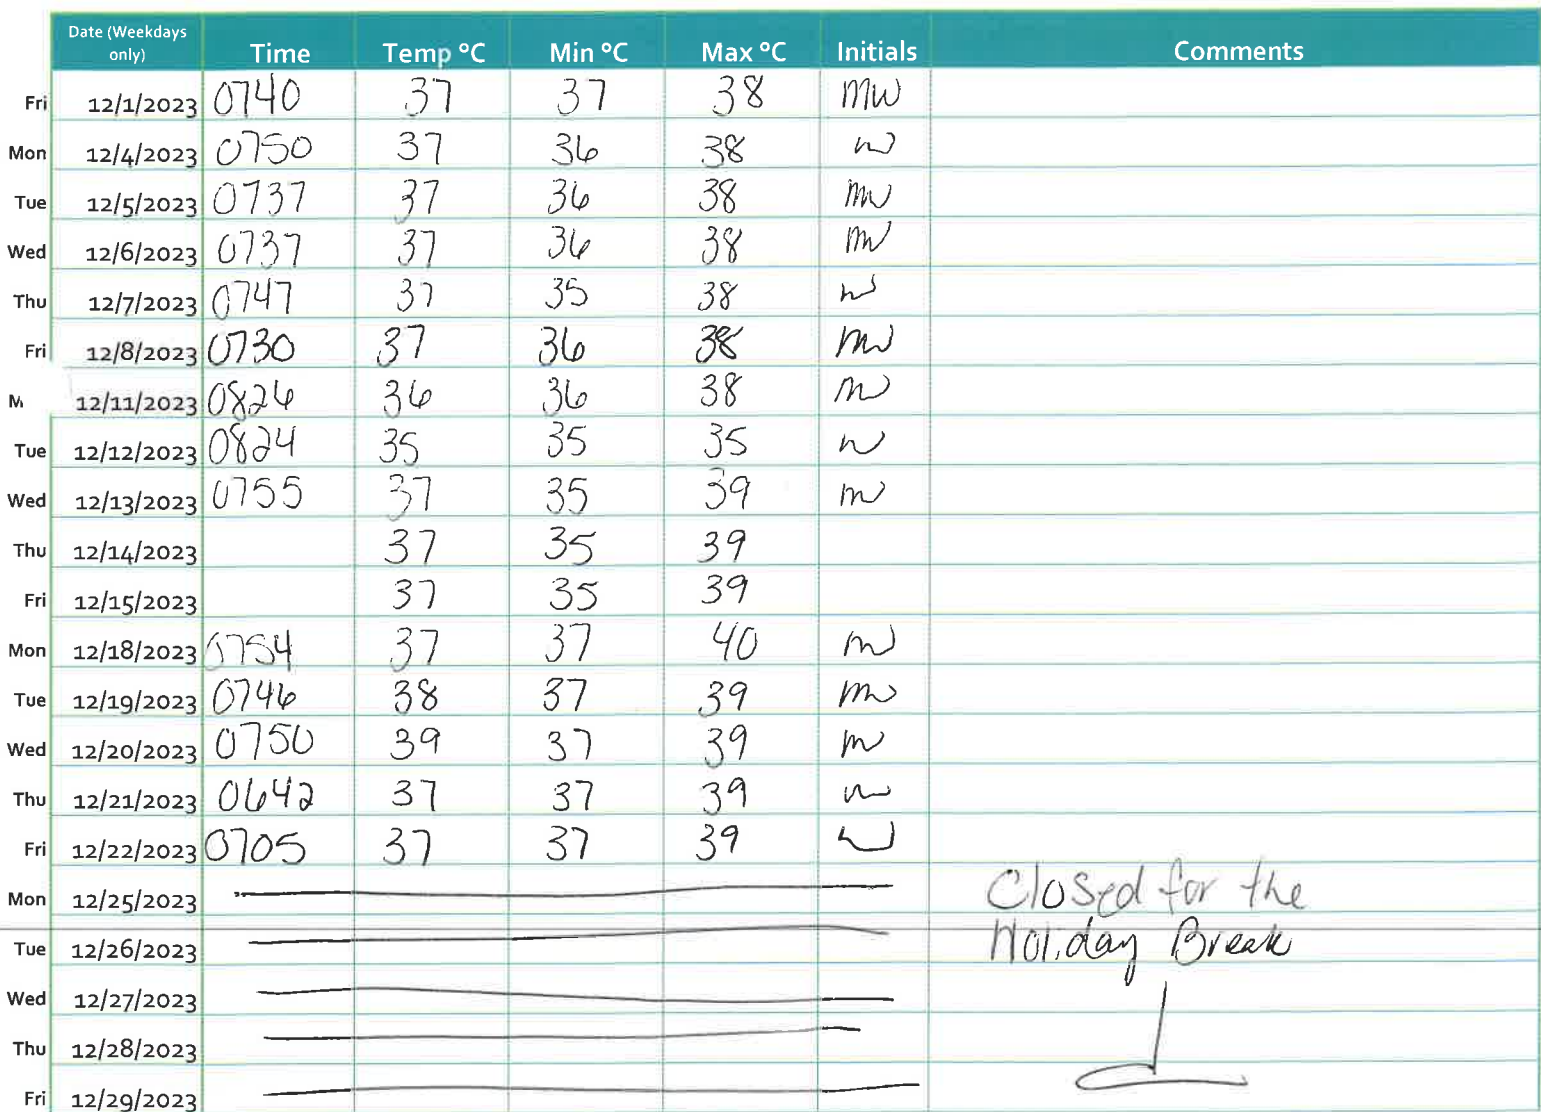 Date (Weekdays only) Time Temp °C Min °C Max °C Initials Comments
Fri 12/1/2023 0740 37 37 38 MW
Mon 12/4/2023 0750 37 36 38
Tue 12/5/2023 0737 37 36 38 MW
Wed 12/6/2023 0737 37 36 38 MW
Thu 12/7/2023 0747 37 35 38
Fri 12/8/2023 0730 37 36 38 MW
M 12/11/2023 0826 36 36 38
Tue 12/12/2023 0824 35 35 35
Wed 12/13/2023 0755 37 35 39
Thu 12/14/2023 37 35 39
Fri 12/15/2023 37 35 39
Mon 12/18/2023 0754 37 37 40
Tue 12/19/2023 0746 38 37 39 MW
Wed 12/20/2023 0750 39 37 39
Thu 12/21/2023 0642 37 37 39
Fri 12/22/2023 0705 37 37 39
Mon 12/25/2023 Closed for the
Tue 12/26/2023 Holiday Break
Wed 12/27/2023
Thu 12/28/2023
Fri 12/29/2023